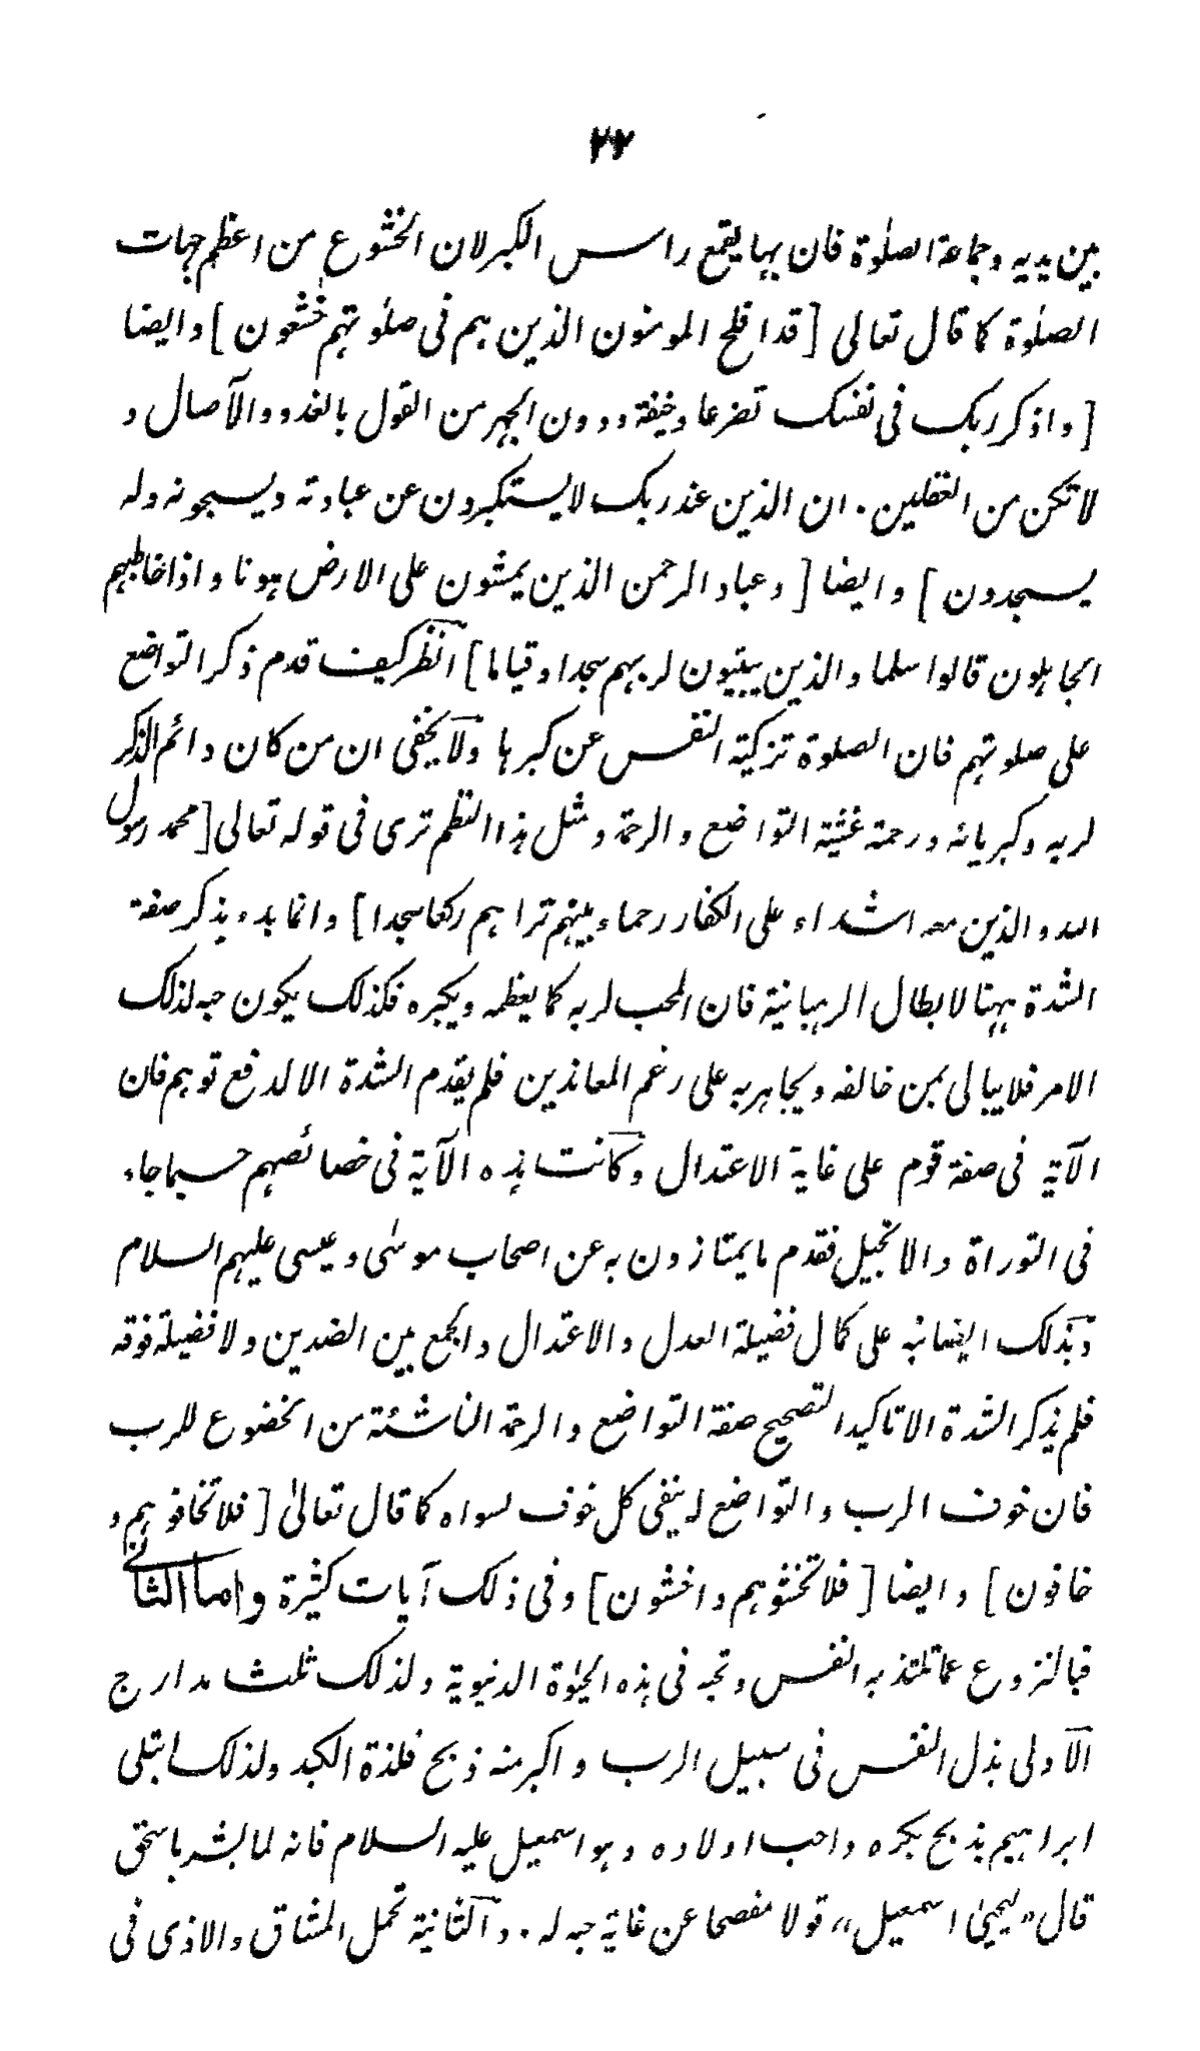 ۲۷
بین یدیہ وجماعۃ الصلٰوۃ فان بہا یقمع راس الکبر لان الخشوع من اعظم جہات
الصلٰوۃ کما قال تعالی [قد افلح المومنون الذین ہم فی صلٰوتہم خٰشعون] وایضا
[واذکر ربک فی نفسک تضرعا وخیفۃ ودون الجہر من القول بالغدو والآصال و
لا تکن من الغٰفلین. ان الذین عند ربک لا یستکبرون عن عبادتہ ویسبحونہ ولہ
یسجدون] وایضا [وعباد الرحمن الذین یمشون علی الارض ہونا واذا خاطبہم
الجاہلون قالوا سلما والذین یبیتون لربہم سجدا وقیاما] انظر کیف قدم ذکر التواضع
علی صلوتہم فان الصلوۃ تزکیۃ النفس عن کبرہا ولا یخفی ان من کان دائم الذکر
لربہ وکبریائہ ورحمتہ غشیتہ التواضع والرحمۃ ومثل ہذا النظم تری فی قولہ تعالی [محمد رسول
اللہ والذین معہ اشداء علی الکفار رحماء بینہم تراہم رکعا سجدا] وانما بدء بذکر صفۃ
الشدۃ ہہنا لابطال الرہبانیۃ فان المحب لربہ کما یعظمہ ویکبرہ فکذلک یکون حبہ لذلک
الامر فلا یبالی بمن خالفہ ویجاہر بہ علی رغم المعاندین فلم یقدم الشدۃ الا لدفع توہم فان
الآیۃ فی صفۃ قوم علی غایۃ الاعتدال وکانت ہذہ الآیۃ فی خصائصہم حسبما جاء
فی التوراۃ والانجیل فقدم ما یمتازون بہ عن اصحاب موسٰی وعیسی علیہم السلام
وبذلک ایضا نبہ علی کمال فضیلۃ العدل والاعتدال والجمع بین الضدین ولا فضیلۃ فوقہ
فلم یذکر الشدۃ الا تاکیدا لتصحیح صفۃ التواضع والرحمۃ الناشئۃ من الخضوع للرب
فان خوف الرب والتواضع لہ ینفی کل خوف لسواہ کما قال تعالٰی [فلا تخافوہم و
خافون] وایضا [فلا تخشوہم واخشون] وفی ذلک آیات کثیرۃ واما الثانی
فبالنزوع عما تلتذ بہ النفس وتحبہ فی ہذہ الحیٰوۃ الدنیویۃ ولذلک ثلث مدارج
الآولی بذل النفس فی سبیل الرب واکبر منہ ذبح فلذۃ الکبد ولذلک ابتلی
ابراہیم بذبح بکرہ واحب اولادہ وہو اسمعیل علیہ السلام فانہ لما بشر باسحق
قال "لیحیٰی اسمعیل،، قولا مفصحا عن غایۃ حبہ لہ. والثانیۃ تحمل المشاق والاذی فی